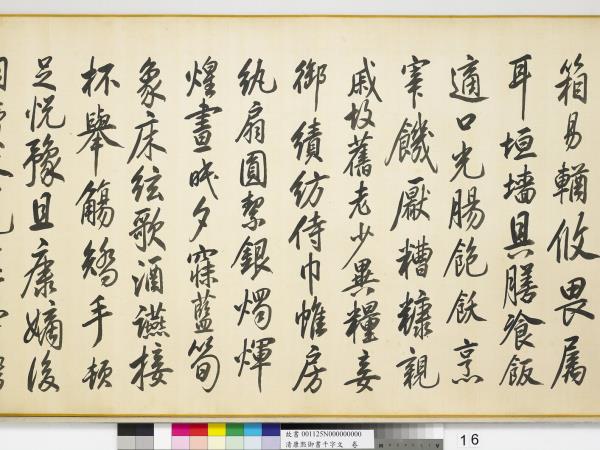 箱易輶攸畏屬
耳垣墻具膳飡飯
適口充腸飽飫烹
宰饑厭糟糠親
戚故舊老少異糧妾
御績紡侍巾帷房
紈扇圓絜銀燭煒
煌晝眠夕寐藍筍
象床絃歌酒讌接
杯舉觴矯手頓
足悅豫且康嫡後
故書 001125N000000000
清康熙御書千字文 卷
16